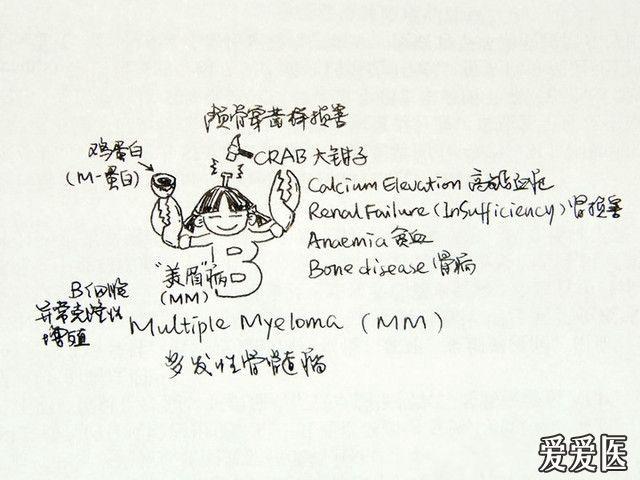 颅骨穿凿样损害
鸡蛋白
(M-蛋白)
CRAB 大钳子
Calcium Elevation 高钙血症
Renal Failure (Insufficiency) 肾损害
Anaemia 贫血
Bone disease 骨病
B
"美眉"病
(MM)
B细胞
异常克隆性
增殖
Multiple Myeloma (MM)
多发性骨髓瘤
爱爱医